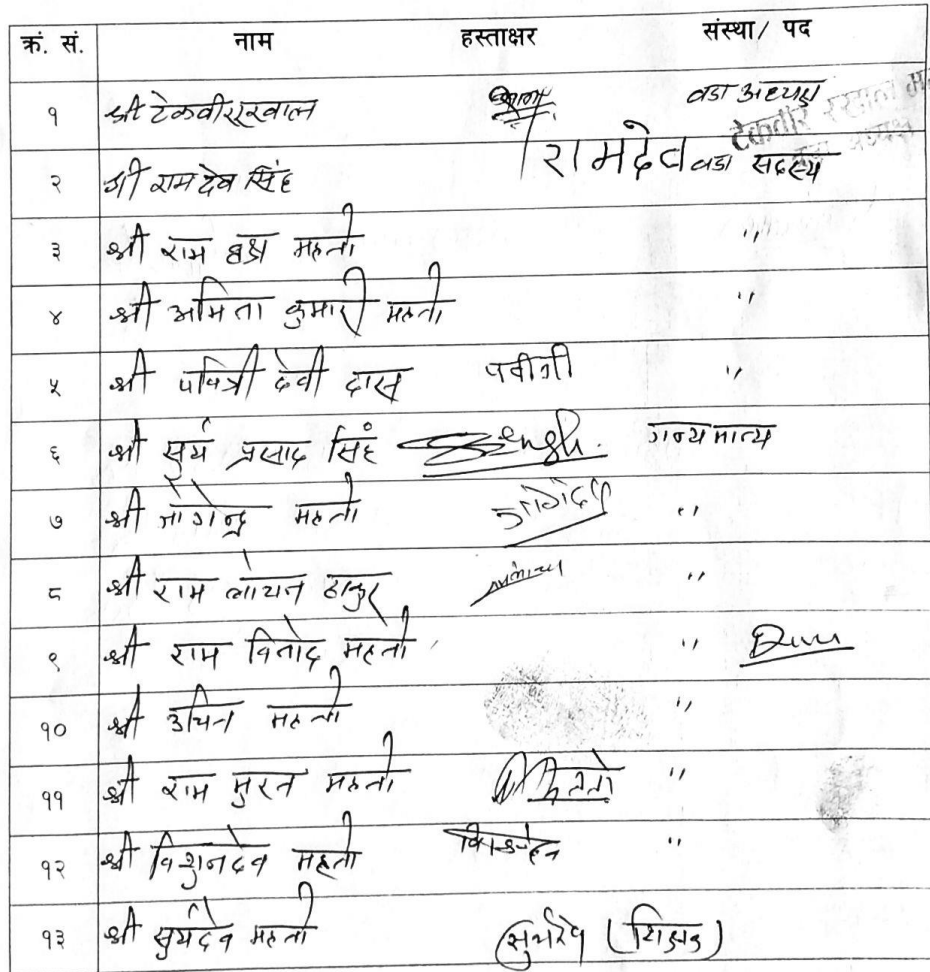 क्रं. सं. नाम हस्ताक्षर संस्था/ पद
१ श्री टेकवीर रखाल वडा अध्यक्ष
२ श्री रामदेव सिंह रामदेव वडा सदस्य
३ श्री राम महतो "
४ श्री अमिता कुमारी महतो "
५ श्री पवित्री देवी दास पवीत्री "
६ श्री सुर्य प्रसाद सिंह गन्यमान्य
७ श्री जोगेन्द्र महतो "
८ श्री राम लोचन ठाकुर "
९ श्री राम विनोद महतो "
१० श्री उचित महतो "
११ श्री राम मुरत महतो "
१२ श्री विशुनदेव महतो "
१३ श्री सुर्यदेव महतो (शिक्षक)